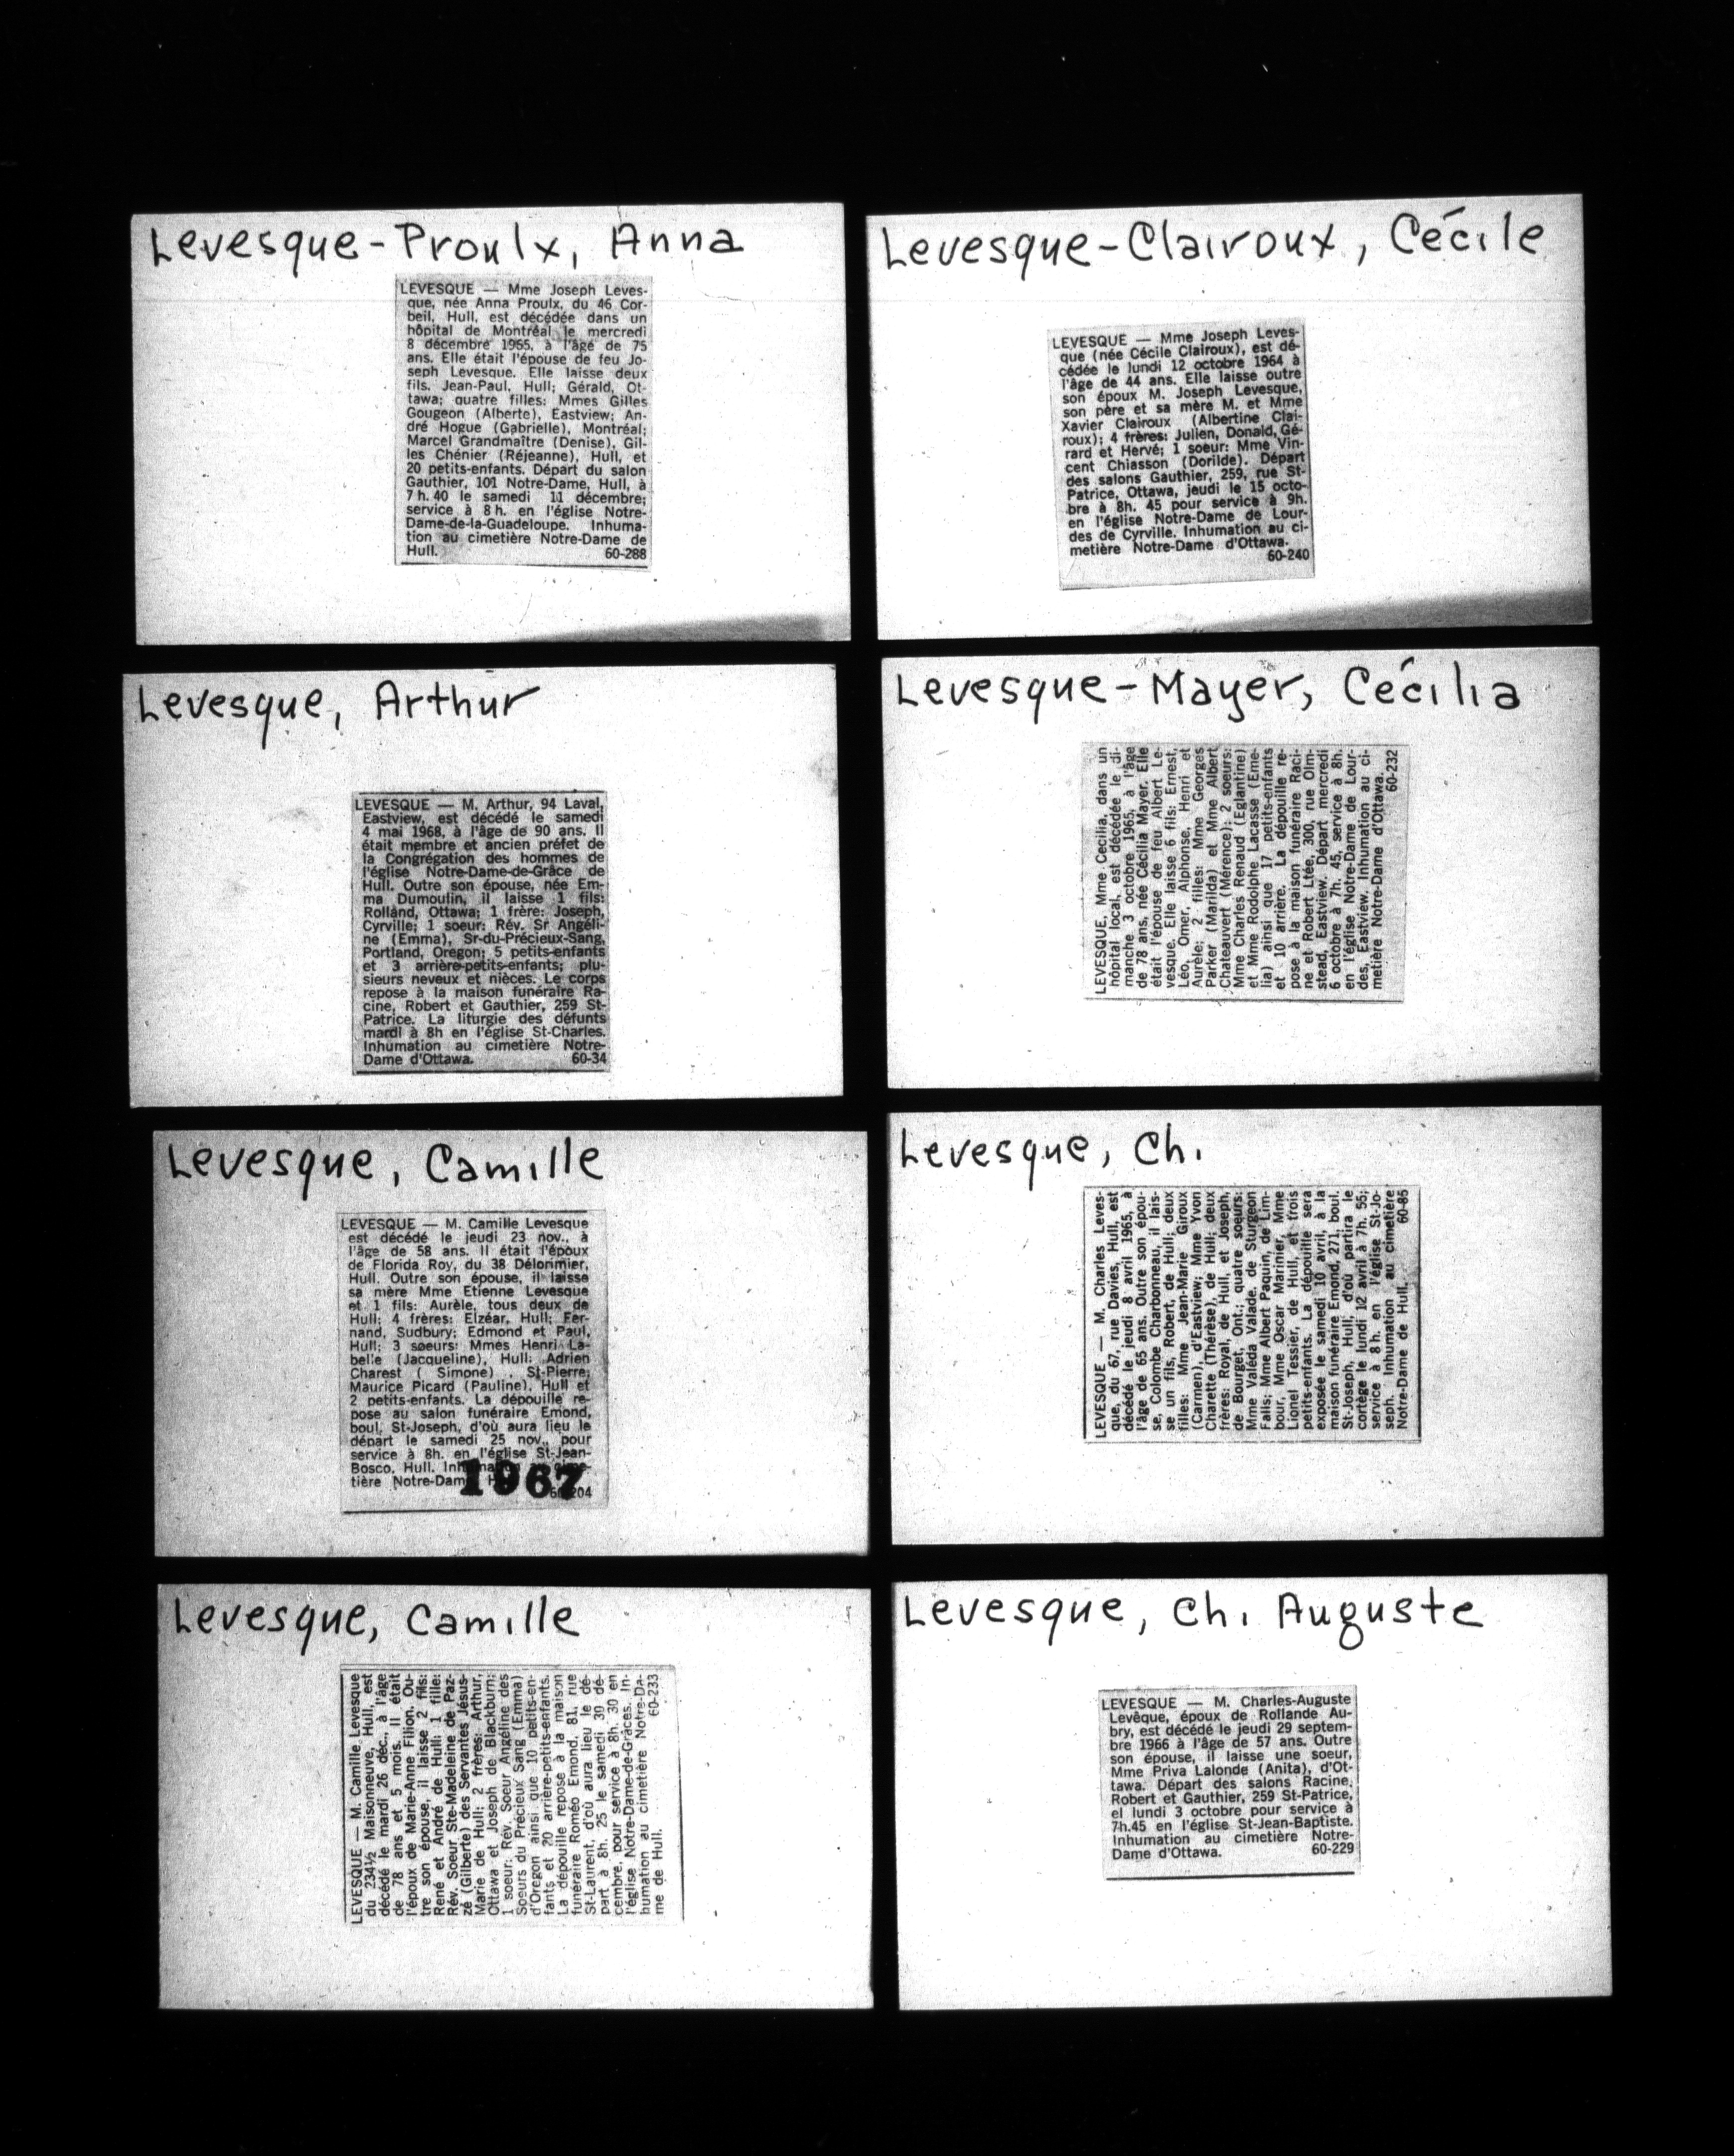 Levesque-Proulx, Anna
LEVESQUE — Mme Joseph Leves-
que, née Anna Proulx, du 46 Cor-
beil, Hull, est décédée dans un
hôpital de Montréal le mercredi
8 décembre 1965, à l'âge de 75
ans. Elle était l'épouse de feu Jo-
seph Levesque. Elle laisse deux
fils, Jean-Paul, Hull; Gérald, Ot-
tawa; quatre filles: Mmes Gilles
Gougeon (Alberte), Eastview; An-
dré Hogue (Gabrielle), Montréal;
Marcel Grandmaître (Denise), Gil-
les Chénier (Réjeanne), Hull, et
20 petits-enfants. Départ du salon
Gauthier, 101 Notre-Dame, Hull, à
7 h. 40 le samedi 11 décembre;
service à 8 h. en l'église Notre-
Dame-de-la-Guadeloupe. Inhuma-
tion au cimetière Notre-Dame de
Hull. 60-288
Levesque-Clairoux, Cécile
LEVESQUE — Mme Joseph Leves-
que (née Cécile Clairoux), est dé-
cédée le lundi 12 octobre 1964 à
l'âge de 44 ans. Elle laisse outre
son époux M. Joseph Levesque,
son père et sa mère M. et Mme
Xavier Clairoux (Albertine Clai-
roux); 4 frères: Julien, Donald, Gé-
rard et Hervé; 1 soeur: Mme Vin-
cent Chiasson (Dorilde). Départ
des salons Gauthier, 259, rue St-
Patrice, Ottawa, jeudi le 15 octo-
bre à 8h. 45 pour service à 9h.
en l'église Notre-Dame de Lour-
des de Cyrville. Inhumation au ci-
metière Notre-Dame d'Ottawa.
60-240
Levesque, Arthur
LEVESQUE — M. Arthur, 94 Laval,
Eastview, est décédé le samedi
4 mai 1968, à l'âge de 90 ans. Il
était membre et ancien préfet de
la Congrégation des hommes de
l'église Notre-Dame-de-Grâce de
Hull. Outre son épouse, née Em-
ma Dumoutin, il laisse 1 fils:
Rolland, Ottawa; 1 frère: Joseph,
Cyrville; 1 soeur: Rév. Sr Angéli-
ne (Emma), Sr-du-Précieux-Sang,
Portland, Oregon; 5 petits-enfants
et 3 arrière-petits-enfants; plu-
sieurs neveux et nièces. Le corps
repose à la maison funéraire Ra-
cine, Robert et Gauthier, 259 St-
Patrice. La liturgie des défunts
mardi à 8h en l'église St-Charles.
Inhumation au cimetière Notre-
Dame d'Ottawa. 60-34
Levesque-Mayer, Cécilia
LEVESQUE, Mme Cecilia, dans un
hôpital local, est décédée le di-
manche 3 octobre 1965, à l'âge
de 78 ans, née Cécilia Mayer. Elle
était l'épouse de feu Albert Le-
vesque. Elle laisse 6 fils: Ernest,
Léo, Omer, Alphonse, Henri et
Aurèle; 2 filles: Mme Georges
Parker (Marilda) et Mme Albert
Chateauvert (Mérence); 2 soeurs:
Mme Charles Renaud (Eglantine)
et Mme Rodolphe Lacasse (Eme-
lia) ainsi que 17 petits-enfants
et 10 arrière. La dépouille re-
pose à la maison funéraire Raci-
ne et Robert Ltée, 300, rue Olm-
stead, Eastview. Départ mercredi
6 octobre à 7h. 45, service à 8h.
en l'église Notre-Dame de Lour-
des, Eastview. Inhumation au ci-
metière Notre-Dame d'Ottawa.
60-232
Levesque, Camille
LEVESQUE — M. Camille Levesque
est décédé le jeudi 23 nov., à
l'âge de 58 ans. Il était l'époux
de Florida Roy, du 38 Délorimier,
Hull. Outre son épouse, il laisse
sa mère Mme Etienne Levesque
et 1 fils: Aurèle, tous deux de
Hull; 4 frères: Elzéar, Hull; Fer-
nand, Sudbury; Edmond et Paul,
Hull; 3 soeurs: Mmes Henri La-
belle (Jacqueline), Hull; Adrien
Charest ( Simone) , St-Pierre;
Maurice Picard (Pauline), Hull et
2 petits-enfants. La dépouille re-
pose au salon funéraire Emond,
boul. St-Joseph, d'où aura lieu le
départ le samedi 25 nov., pour
service à 8h. en l'église St-Jean-
Bosco, Hull.
tière Notre-Dame
1967
204
Levesque, Ch.
LEVESQUE — M. Charles Leves-
que, du 67, rue Davies, Hull, est
décédé le jeudi 8 avril 1965, à
l'âge de 65 ans. Outre son épou-
se, Colombe Charbonneau, il lais-
se un fils, Robert, de Hull; deux
filles: Mme Jean-Marie Giroux
(Carmen), d'Eastview; Mme Yvon
Charette (Thérèse), de Hull; deux
frères: Royal, de Hull, et Joseph,
de Bourget, Ont.; quatre soeurs:
Mme Valéda Valade, de Sturgeon
Falls; Mme Albert Paquin, de Lim-
bour, Mme Oscar Marinier, Mme
Lionel Tessier, de Hull, et trois
petits-enfants. La dépouille sera
exposée le samedi 10 avril, à la
maison funéraire Emond, 271, boul.
St-Joseph, Hull, d'où partira le
cortège le lundi 12 avril à 7h. 55;
service à 8 h. en l'église St-Jo-
seph. Inhumation au cimetière
Notre-Dame de Hull. 60-85
Levesque, Camille
LEVESQUE — M. Camille Levesque
du 234½ Maisonneuve, Hull, est
décédé le mardi 26 déc., à l'âge
de 78 ans et 5 mois. Il était
l'époux de Marie-Anne Filion. Ou-
tre son épouse, il laisse 2 fils:
René et André de Hull; 1 fille:
Rév. Soeur Ste-Madeleine de Paz-
zé (Gilberte) des Servantes Jésus-
Marie de Hull; 2 frères: Arthur,
Ottawa et Joseph de Blackburn;
1 soeur: Rév. Soeur Angéline des
Soeurs du Précieux Sang (Emma)
d'Oregon ainsi que 10 petits-en-
fants et 20 arrière-petits-enfants.
La dépouille repose à la maison
funéraire Roméo Emond, 81, rue
St-Laurent, d'où aura lieu le dé-
part à 8h. 25 le samedi 30 dé-
cembre, pour service à 8h. 30 en
l'église Notre-Dame-de-Grâces. In-
humation au cimetière Notre-Da-
me de Hull. 60-233
Levesque, Ch. Auguste
LEVESQUE — M. Charles-Auguste
Levêque, époux de Rollande Au-
bry, est décédé le jeudi 29 septem-
bre 1966 à l'âge de 57 ans. Outre
son épouse, il laisse une soeur,
Mme Priva Lalonde (Anita), d'Ot-
tawa. Départ des salons Racine,
Robert et Gauthier, 259 St-Patrice,
el lundi 3 octobre pour service à
7h.45 en l'église St-Jean-Baptiste.
Inhumation au cimetière Notre-
Dame d'Ottawa. 60-229